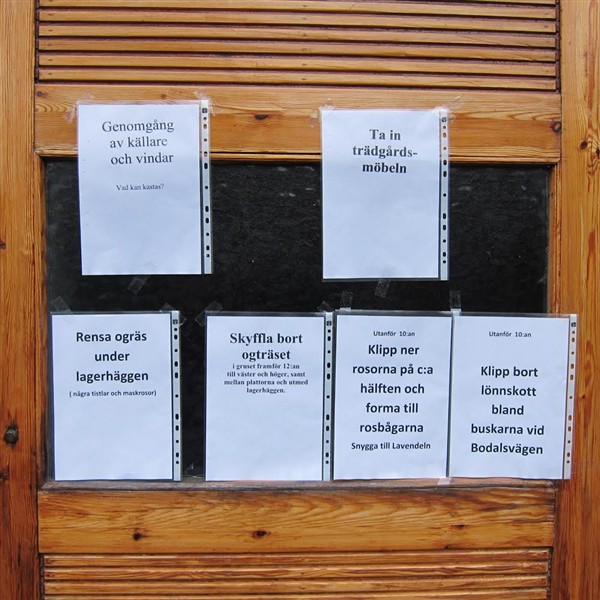 Genomgång
av källare
och vindar
Vad kan kastas?
Ta in
trädgårds-
möbeln
Rensa ogräs
under
lagerhäggen
( några tistlar och maskrosor)
Skyffla bort
ogträset
i gruset framför 12:an
till väster och höger, samt
mellan plattorna och utmed
lagerhäggen.
Utanför 10:an
Klipp ner
rosorna på c:a
hälften och
forma till
rosbågarna
Snygga till Lavendeln
Utanför 10:an
Klipp bort
lönnskott
bland
buskarna vid
Bodalsvägen